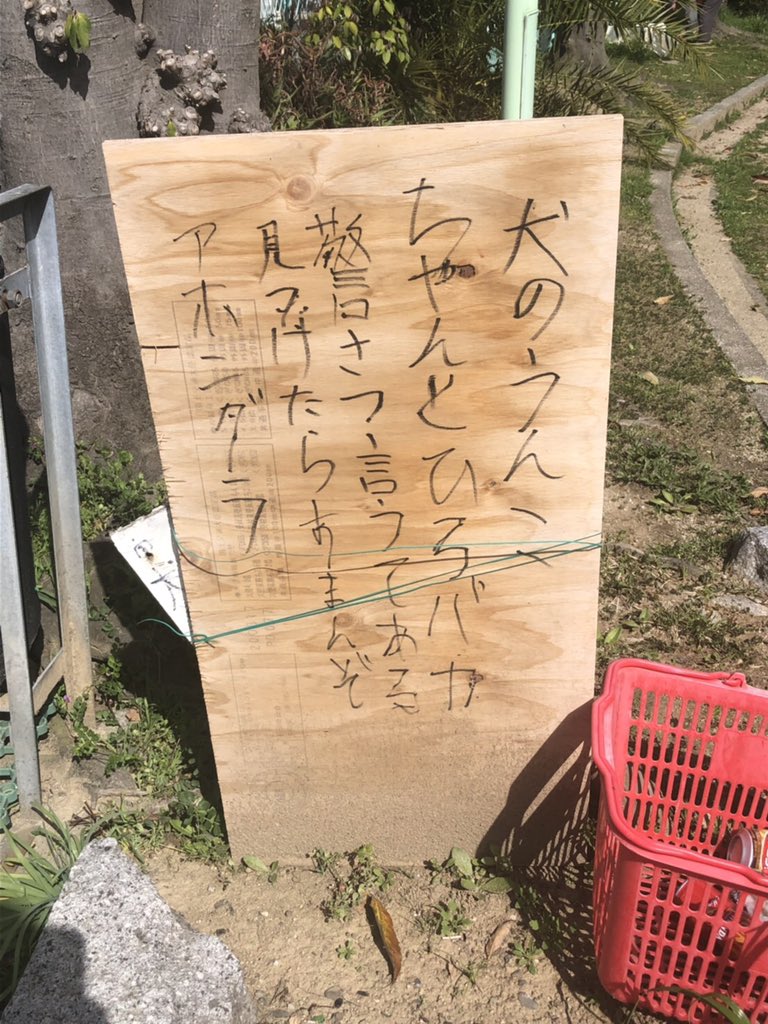 犬のうんこ
ちやんとひろバカ
警さつ言うてある
見つけたらあまんぞ
アホンダーラ